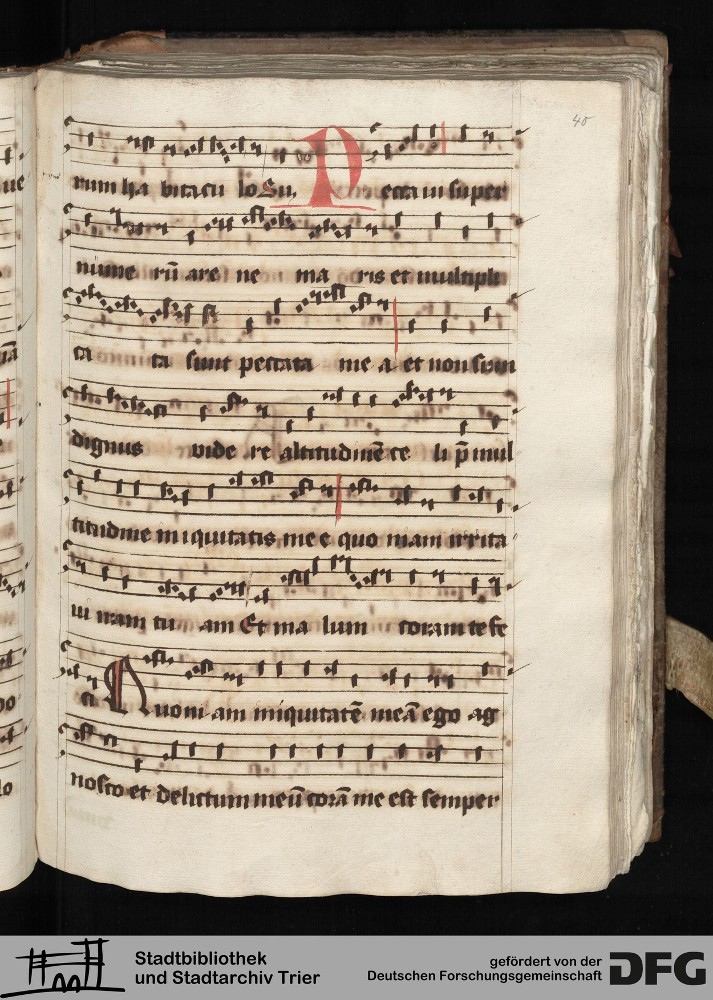 40
rum ha bitacu lo Su. Pecca ui super
nume rū are ne ma ris et multipli
ca ta sunt peccata me a et non sum
dignus vide re altitudinē ce li p̄ mul
titudine iniquitatis mee quo niam irrita
ui iram tu am Et ma lum coram te fe
ci Quoni am iniquitatē meā ego ag
nosco et delictum meū corā me est semper
Stadtbibliothek
und Stadtarchiv Trier
gefördert von der
Deutschen Forschungsgemeinschaft
DFG